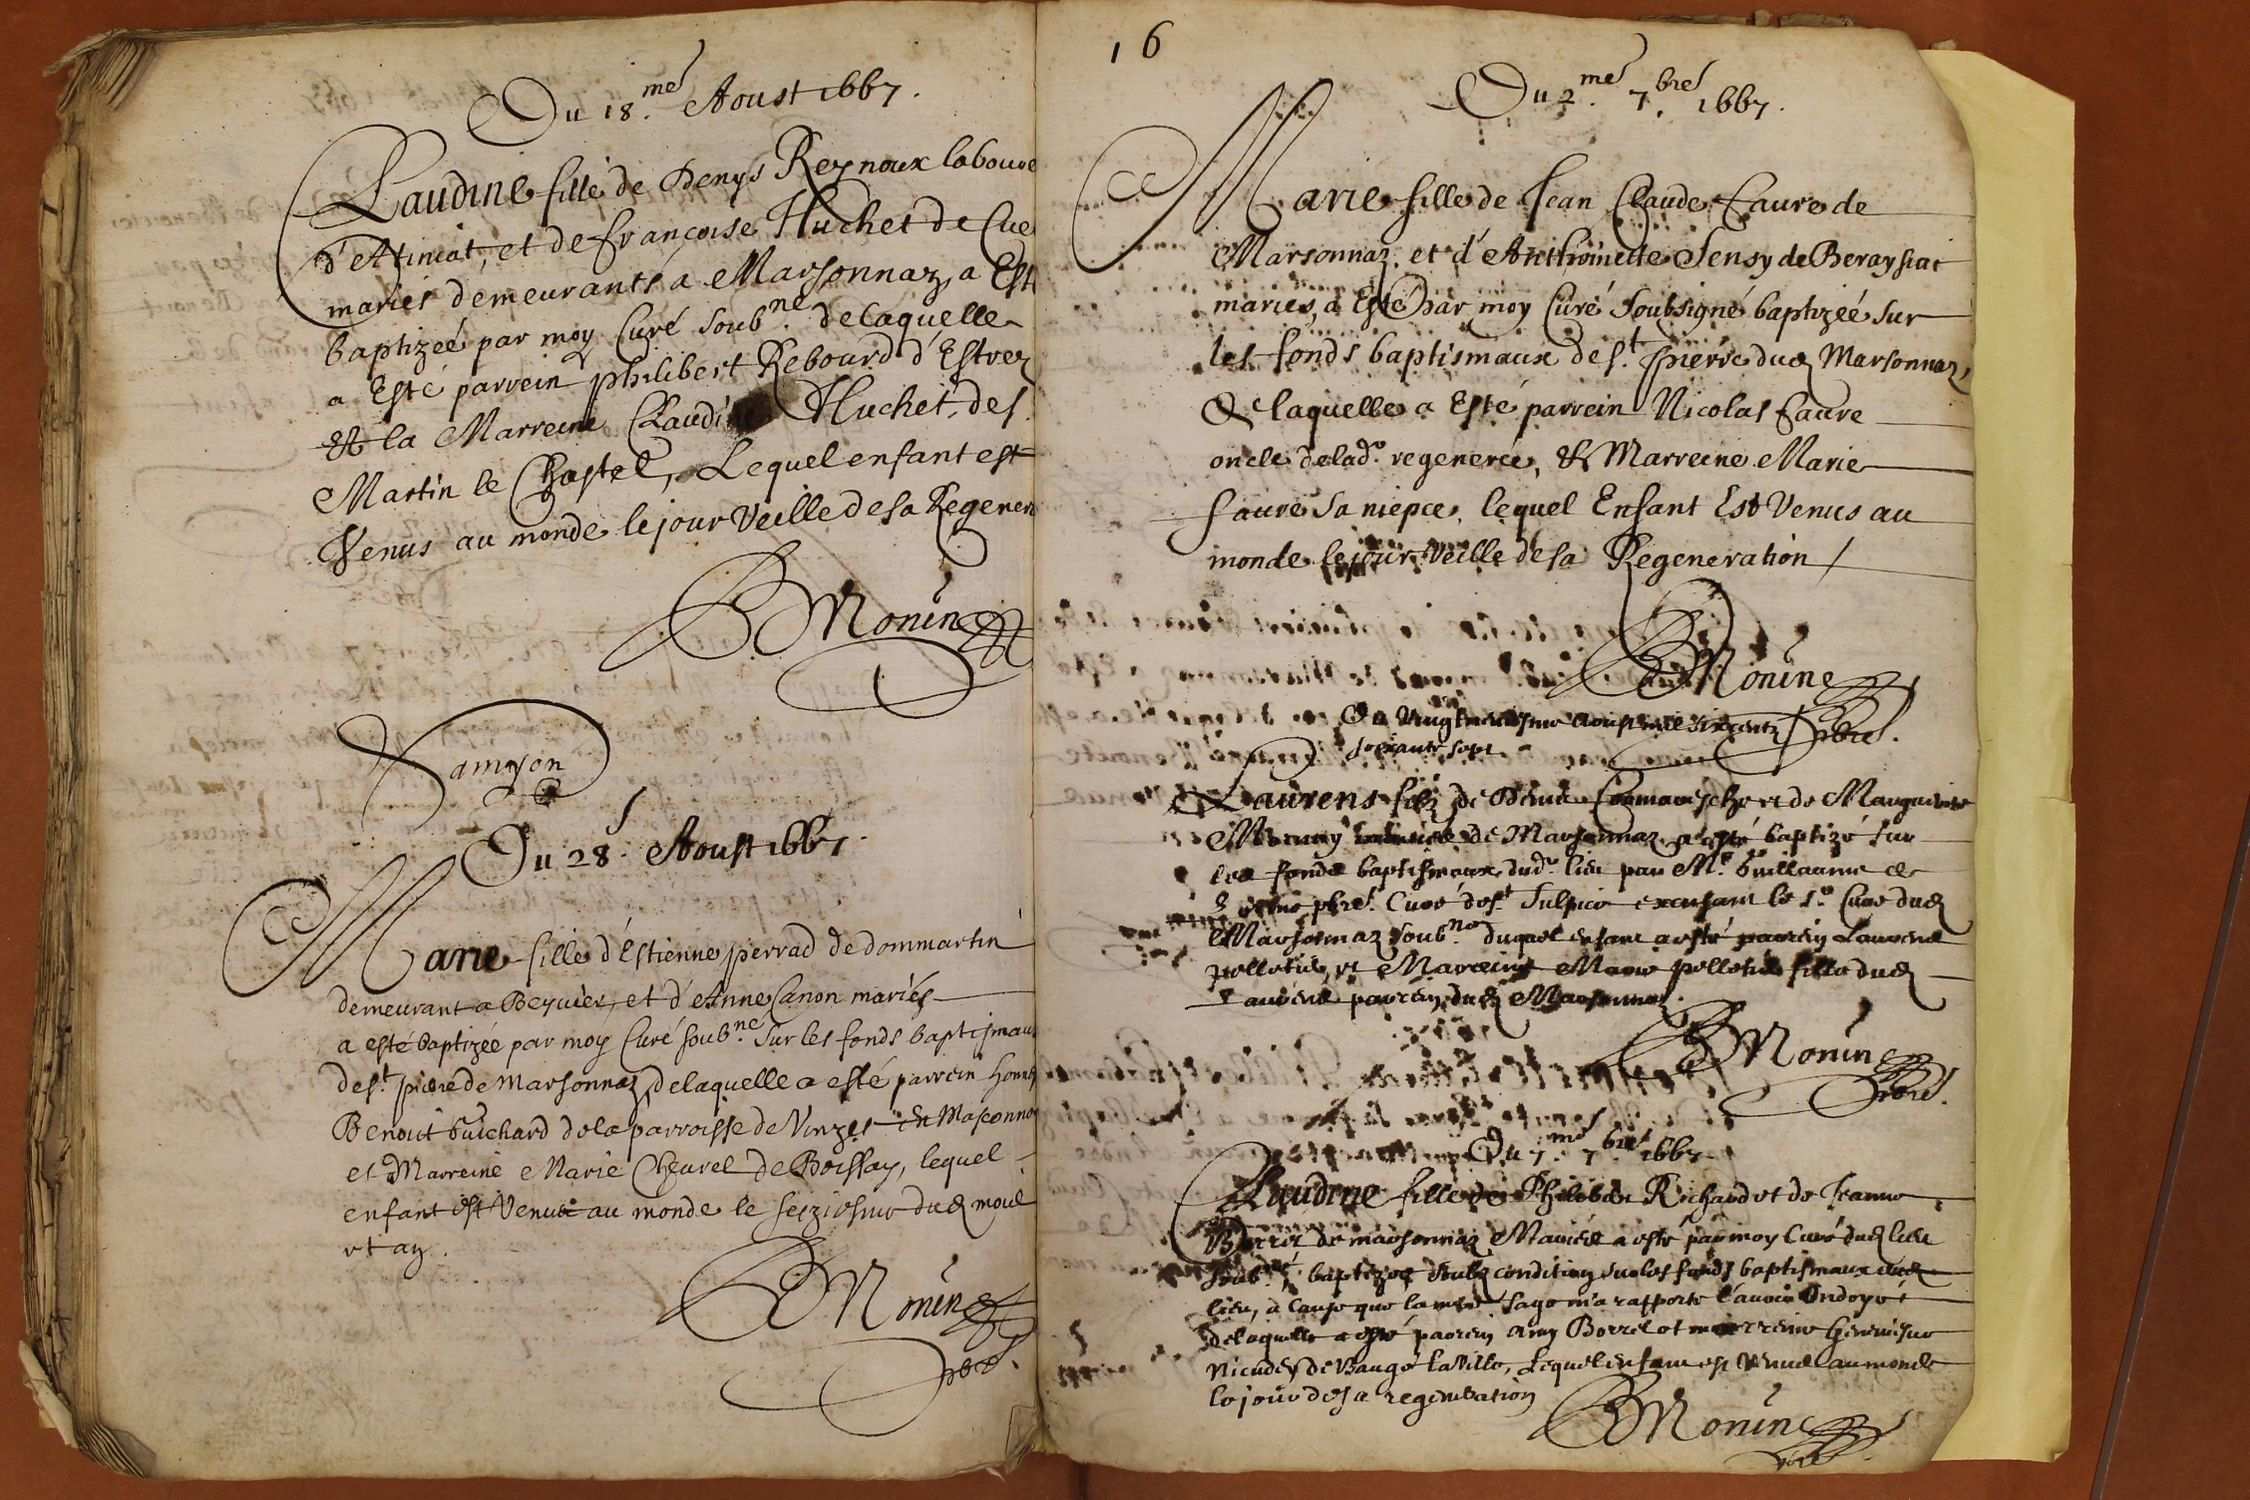 Du 18.me Aoust 1667.
Claudine fille de Denys Reynoux laboure
d'Attiniat, et de francoise Huchet de Cue
mariés demeurants a Marsonnaz, a Esté
baptizeé par moy Curé soub.né delaquelle
a Esté parrein philibert Rebourd d'Estrez
et la Marreine Claudine Huchet, de s.
Martin le Chastel, Lequel enfant est
Venus au monde le jour Veille de sa Regener
BMonin
Samyon
Du 28. Aoust 1667.
Marie fille d'Estienne perrad de dommartin
demeurant a Beyvier, et d'Anne Canon mariés
a esté baptizée par moy Curé soub.né sur les fonds baptismau
de s.t pierre de marsonnaz delaquelle a esté parrein hon
Benoict Guichard de la parroisse de Vinzes en Masconno
et Marreine Marie Chevrel de Boissay, lequel
enfant est Venus au monde le seiziesme dud moie
et an.
BMonin
pbre.
16
Du 2.me 7.bre 1667.
Marie fille de Jean Claude Faure de
Marsonnaz, et d'Anthoinette Jensy de Beraysiat
mariés, a Esté par moy Curé Soubsigné baptizeé sur
les fonds baptismaux de s.t pierre dud Marsonnaz,
De laquelle a Esté parrein Nicolas faure
oncle delad.e regenereé, et Marreine Marie
faure sa niepce, lequel Enfant Est Venus au
monde le jour Veille de sa Regeneration /
BMonin
pbre.
Du Vingt aoust mil six cents
soixante sept
Laurens filz de et de Marguerite
mariés de Marsonnaz a esté baptizé sur
les fonds baptismaux dud.t lieu par M.re Guillaume
pbre. Curé de s.t Sulpice le s.r Curé dud
Marsonnaz soub.né duquel enfant a esté parrein Laurens
pelletie, et Marreine Marie pelletie fille dud
Laurens parrein dud Marsonnaz.
BMonin
pbre.
Du 7.me 7.bre 1667
Claudine fille de Philibert Richard et de Jeanne
Borrel de marsonnaz Mariés a esté par moy Curé dud lieu
soub.né baptizeé soubz condition sur les fonds baptismaux dud
lieu, a Cause que la mere sage m'a rapporté l'avoir Ondoyé
delaquelle a esté parrein Borrel et marreine
de Baugé la Ville, Lequel enfant est Venus au monde
le jour de sa regeneration
BMonin
pbre.